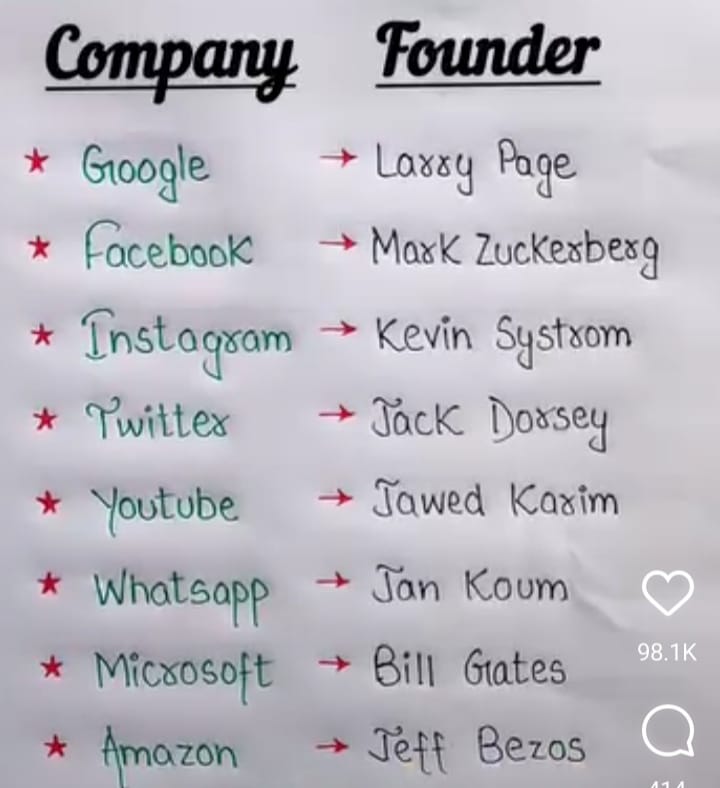 Company Founder
★ Google → Larry Page
★ Facebook → Mark Zuckerberg
★ Instagram → Kevin Systrom
★ Twitter → Jack Dorsey
★ Youtube → Jawed Karim
★ Whatsapp → Jan Koum
98.1K
★ Microsoft → Bill Gates
★ Amazon → Jeff Bezos